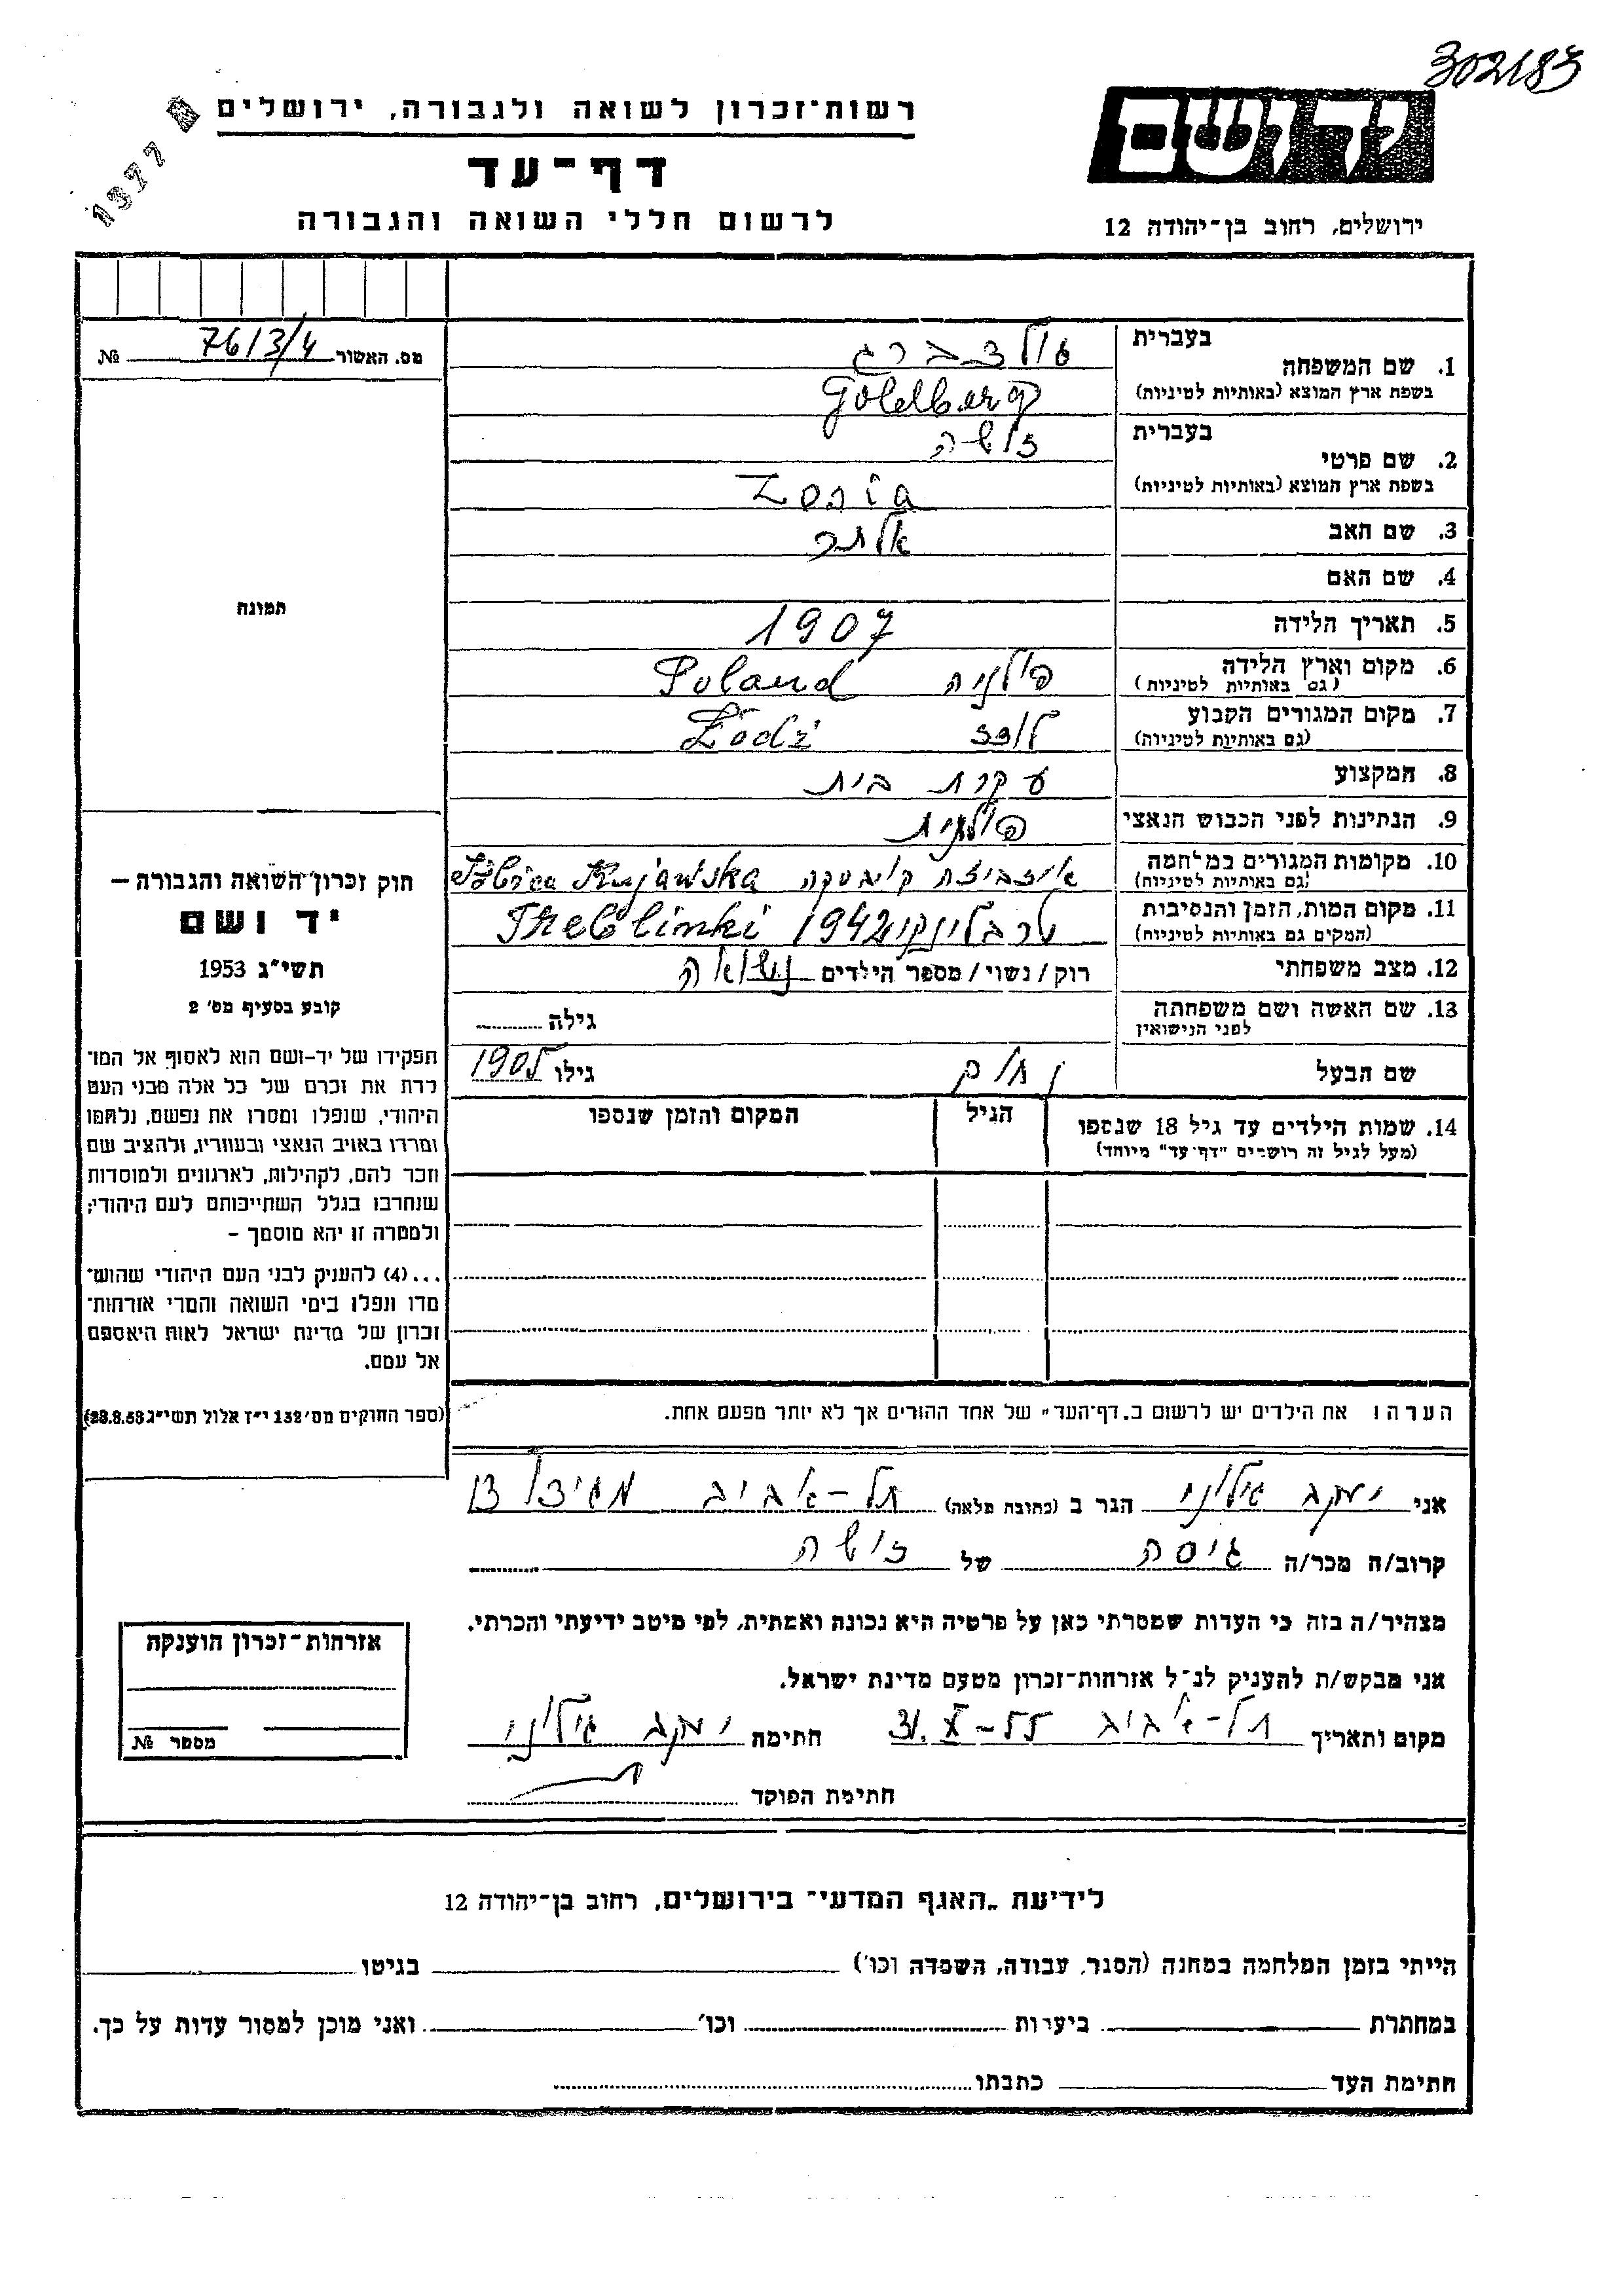 302183
רשות־זכרון לשואה ולגבורה, ירושלים
1377
דף־עד
לרשום חללי השואה והגבורה
יד ושם
ירושלים, רחוב בן־יהודה 12
מס. האשור 7613/4 №
תמונה
בעברית
1. שם המשפחה גולדברג
בשפת ארץ המוצא (באותיות לטיניות) Goldberg
בעברית
2. שם פרטי זושה
בשפת ארץ המוצא (באותיות לטיניות) Zosia
3. שם האב
4. שם האם
5. תאריך הלידה 1907
6. מקום וארץ הלידה פולניה Poland
(גם באותיות לטיניות)
7. מקום המגורים הקבוע לודז Łodź
(גם באותיות לטיניות)
8. המקצוע עקרת בית
9. הנתינות לפני הכבוש הנאצי פולנית
10. מקומות המגורים במלחמה איזביצה קויבסקה Izbica Kujawska
(גם באותיות לטיניות)
11. מקום המות, הזמן והנסיבות טרבלינקי 1942 Treblinki
(המקים גם באותיות לטיניות)
12. מצב משפחתי רוק/נשוי/מספר הילדים נשואה
13. שם האשה ושם משפחתה
לפני הנישואין
גילה
שם הבעל נחום גילו 1905
14. שמות הילדים עד גיל 18 שנספו הגיל המקום והזמן שנספו
(מעל לגיל זה רושמים "דף־עד" מיוחד)
הערה: את הילדים יש לרשום ב„דף־העד" של אחד ההורים אך לא יותר מפעם אחת.
חוק זכרון השואה והגבורה –
יד ושם
תשי"ג 1953
קובע בסעיף מס' 2
תפקידו של יד־ושם הוא לאסוף אל המו־
לדת את זכרם של כל אלה מבני העם
היהודי, שנפלו ומסרו את נפשם, נלחמו
ומרדו באויב הנאצי ובעוזריו, ולהציב שם
וזכר להם, לקהילות, לארגונים ולמוסדות
שנחרבו בגלל השתייכותם לעם היהודי;
ולמטרה זו יהא מוסמך –
...(4) להעניק לבני העם היהודי שהוש־
מדו ונפלו בימי השואה והמרי אזרחות־
זכרון של מדינת ישראל לאות היאספם
אל עמם.
(ספר החוקים מס' 132 י"ז אלול תשי"ג 28.8.53)
אני יעקב גילוני הגר ב (כתובת מלאה) תל-אביב 13
קרוב/ה מכר/ה גיסה של זושה
מצהיר/ה בזה כי העדות שמסרתי כאן על פרטיה היא נכונה ואמתית, לפי מיטב ידיעתי והכרתי.
אני מבקש/ת להעניק לנ"ל אזרחות־זכרון מטעם מדינת ישראל.
מקום ותאריך תל-אביב 31.X-55 חתימה יעקב גילוני
חתימת הפוקד
אזרחות־זכרון הוענקה
מספר №
לידיעת „האגף המדעי" בירושלים, רחוב בן־יהודה 12
הייתי בזמן המלחמה במחנה (הסגר, עבודה, השמדה וכו') בגיטו
במחתרת ביערות וכו' ואני מוכן למסור עדות על כך.
חתימת העד כתבתו